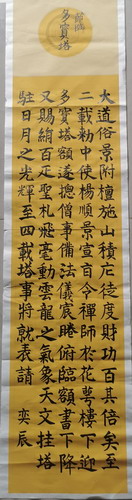 節臨
多寶塔
大道俗景附檀施山積庀徒度財功百其倍矣至
二載勅中使楊順景宣旨令禪師於花萼樓下迎
多寶塔額遂摠僧事備法儀宸睠俯臨額書下降
又賜絹百疋聖札飛毫動雲龍之氣象天文挂塔
駐日月之光輝至四載塔事將就表請 奕辰